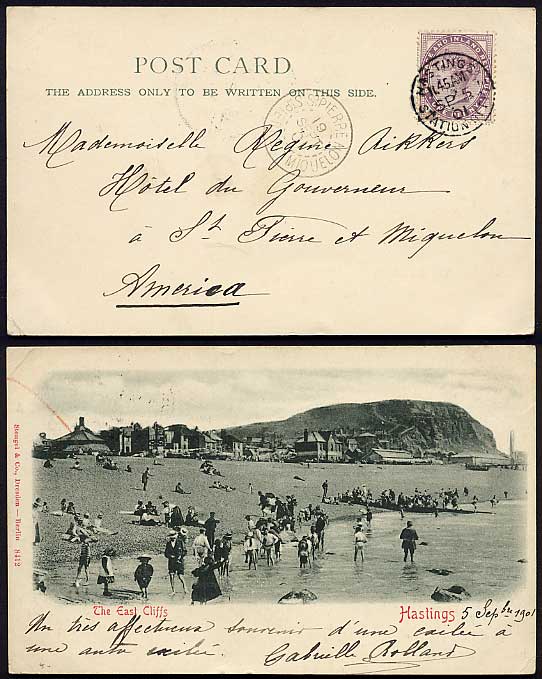 POST CARD
THE ADDRESS ONLY TO BE WRITTEN ON THIS SIDE.
HASTINGS
11.45 AM
SP 5
01
STATION
ST PIERRE
19
SEPT
MIQUELON
Mademoiselle Regine Rikkers
Hôtel du Gouverneur
à St. Pierre et Miquelon
America
Stengel & Co., Dresden — Berlin 8412
The East Cliffs
Hastings 5 Sepbre 1901
Un très affectueux souvenir d'une exilée à
une autre exilée. Gabrielle Rolland